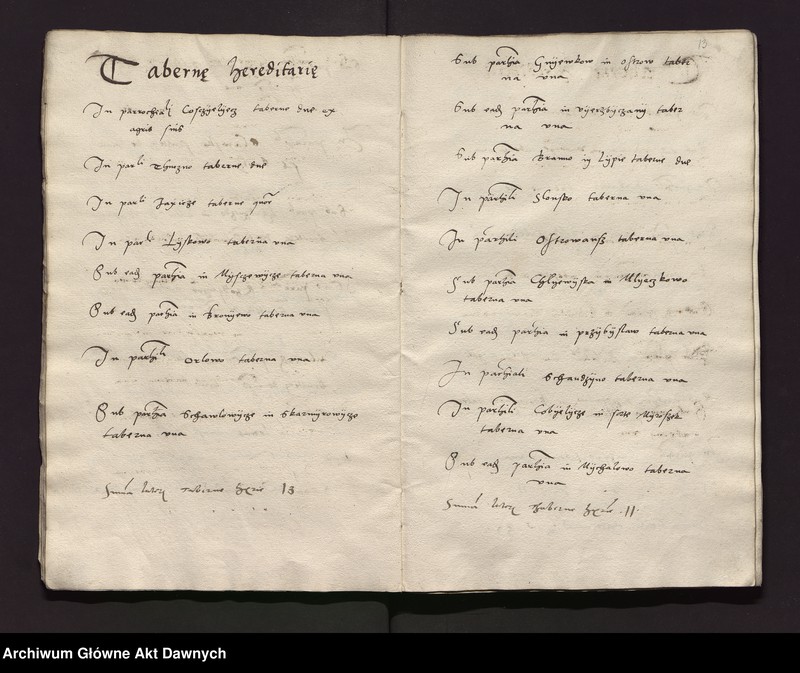 Tabernę hereditarię
In parrocheali Cosczyelyecz taberne due ex
agris suis
In parli taberne due
In parli Jaxicze taberne
In parli Lyskowo taberna una
Sub ead parhia in Mysczewycze taberna una
Sub ead parhia in Bronyewo taberna una
In parhli Orlowo taberna una
Sub parhia Schawlowycze in Skarmyrowycze
taberna una
Summa taberne 13
13
Sub parhia Gnyewkow in Ostrow taber
na una
Sub ead parhia in Vyerzbyczany taber
na una
Sub parhia Branno in Lypie taberne due
In parhili Slonsko taberna una
In parhili Ostrowansz taberna una
Sub parhia Chlyewyska in Mlyeczkowo
taberna una
Sub ead parhia in przybyslaw taberna una
In parhiali Schandzyno taberna una
In parhili Cobyelycze in sorte
taberna una
Sub ead parhia in Mychalowo taberna
una
Summa taberne 11
Archiwum Główne Akt Dawnych